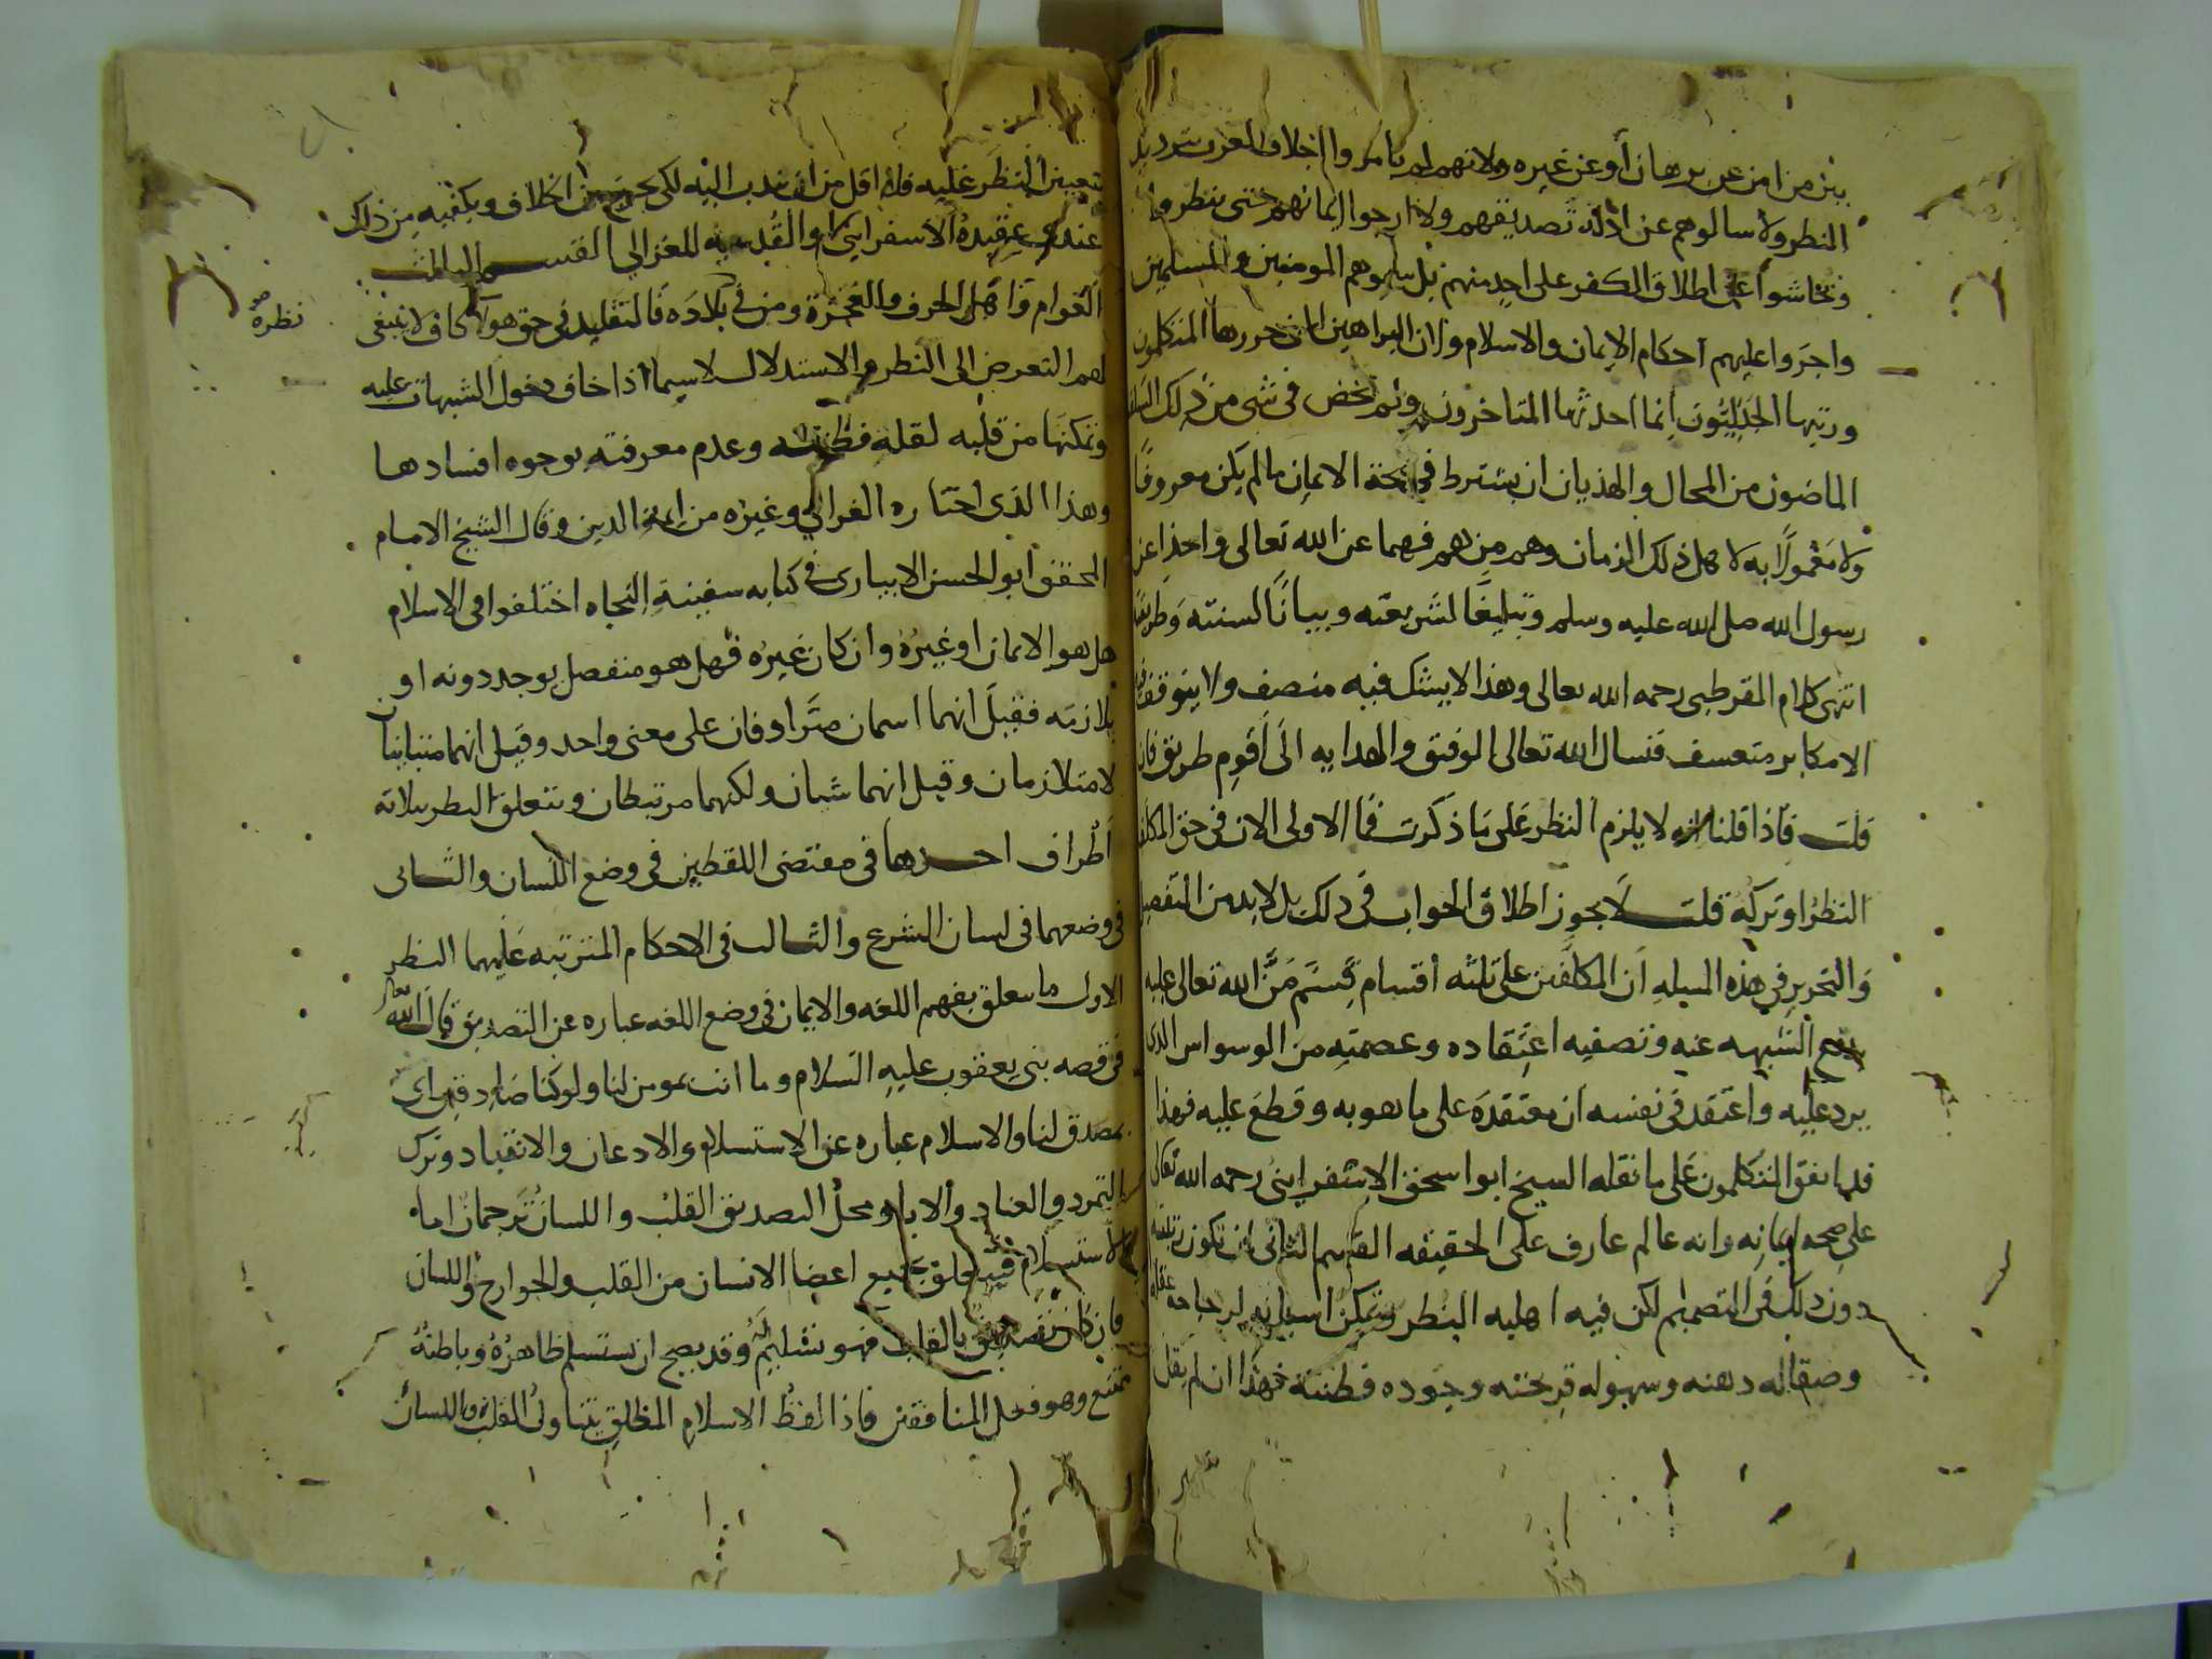 بين من امن عن برهان أو عن غيره ولانهم لم يامروا اجلاف العرب بترديد
النظر ولا سالوهم عن ادلة تصديقهم ولا ارجوا ايمانهم حتى ينظروا
وتحاشوا عن اطلاق الكفر على احد منهم بل سموهم المومنين والمسلمين
واجروا عليهم احكام الايمان والاسلام ولان البراهين التي حررها المتكلمون
ورتبها الجدليون انما احدثها المتاخرون ولم يخض في شي من ذلك السلف
الماضون من المحال والهذيان ان يشترط في صحة الايمان ما لم يكن معروفا
ولا معمولا به لاهل ذلك الزمان وهم من هم فهما عن الله تعالى واخذا عن
رسول الله صلى الله عليه وسلم وتبليغا لشريعته وبيانا لسنته وطريقته
انتهى كلام القرطبي رحمه الله تعالى وهذا لا يشك فيه منصف ولا يتوقف فيه
الا مكابر متعسف فنسال الله تعالى التوفيق والهدايه الى أقوم طريق فان
قلت فاذا قلنا انه لا يلزم النظر على ما ذكرت فما الاولى الان في حق المكلف
النظر او تركه قلت لا يجوز اطلاق الجواب في ذلك بل لا بد من التفصيل
والتحرير في هذه المسيله ان المكلفين على ثلثه أقسام قسم من الله تعالى عليه
برفع الشبهه عنه وتصفيه اعتقاده وعصمته من الوسواس الذي
يرد عليه واعتقد في نفسه ان معتقده على ما هو به وقطع عليه فهذا
قد اتفق المتكلمون على ما نقله الشيخ ابو اسحق الاسفرايني رحمه الله تعالى
على صحه ايمانه وانه عالم عارف على الحقيقه القسم الثاني ان تكون رتبته
دون ذلك في التصميم لكن فيه اهليه النظر وتمكن اسبابه لرجاحه عقله
وصقاله ذهنه وسهوله قريحته وجوده فطنته فهذا ان لم يقل
بتعيين النظر عليه فلا اقل من ان يندب اليه لكي يخرج من الخلاف ويكفيه من ذلك
عندي عقيدة الاسفرايني او القدسيه للغزالي القسم الثالث
العوام واهل الحرف والعجزة ومن في بلاده فالتقليد في حق هولا كاف لا ينبغي
نظره
لهم التعرض الى النظر والاستدلال لاسيما اذا خاف دخول الشبهات عليه
وتمكنها من قلبه لقلة فطنته وعدم معرفته بوجوه افسادها
وهذا الذي اختاره الغزالي وغيره من ايمة الدين وقال الشيخ الامام
المحقق ابو الحسن الابياري في كتابه سفينة النجاه اختلفوا في الاسلام
هل هو الايمان او غيره وان كان غيره فهل هو منفصل يوجد دونه او
يلازمه فقيل انهما اسمان مترادفان على معنى واحد وقيل انهما متباينان
لا متلازمان وقيل انهما شيان ولكنهما مرتبطان ويتعلق النظر بثلاثه
أطراف احدها في مقتضى اللفظين في وضع اللسان والثاني
في وضعهما في لسان الشرع والثالث في الاحكام المترتبه عليهما النظر
الاول ما يتعلق بفهم اللغه والايمان في وضع اللغه عباره عن التصديق قال الله تعالى
في قصه بني يعقوب عليه السلام وما انت بمومن لنا ولو كنا صادقين اي
بمصدق لنا والاسلام عباره عن الاستسلام والاذعان والانقياد وترك
التمرد والعناد والابا ومحل التصديق القلب واللسان ترجمان اما
الاستسلام فيتعلق بجميع اعضا الانسان من القلب والجوارح واللسان
فان كل تصديق بالقلب فهو تسليم وقد يصح ان يستسلم ظاهره وباطنه
ممتنع وهو فعل المنافقين فاذا لفظ الاسلام المطلق يتناول القلب واللسان